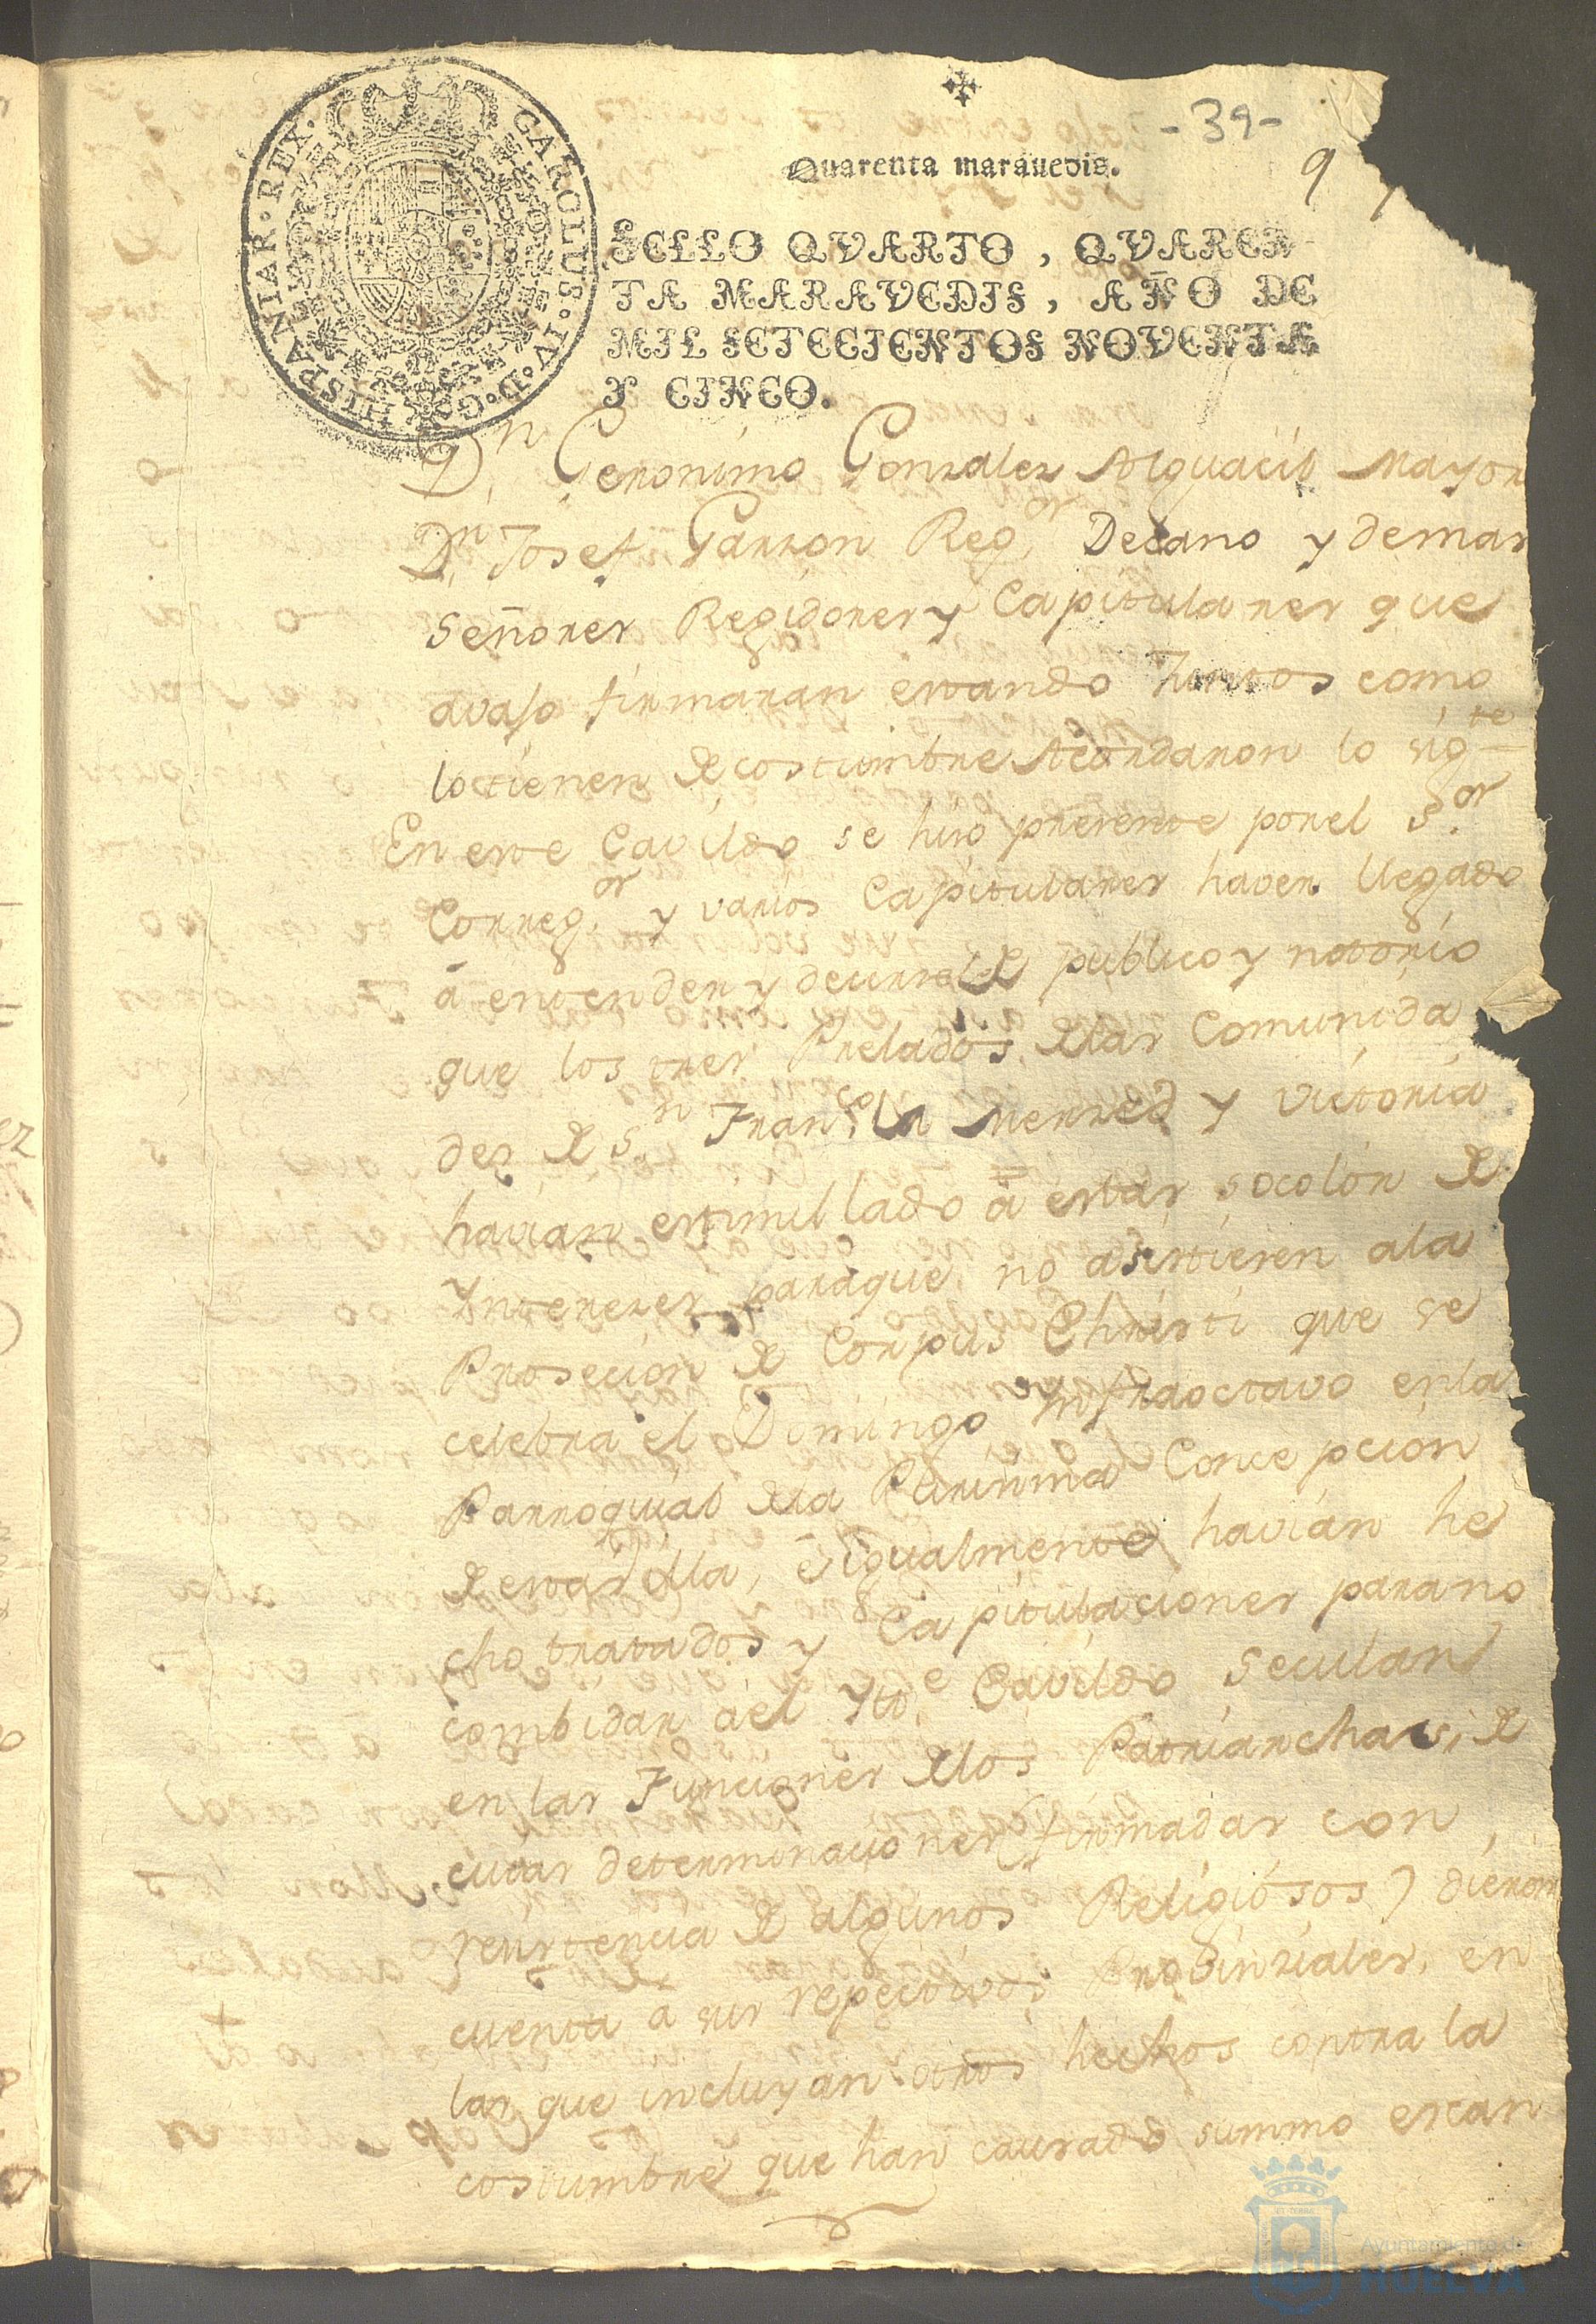 CAROLUS·IV·D·G·HISPANIAR·REX·
-39-
Quarenta marauedis.
9
SELLO QVARTO, QVAREN
TA MARAVEDIS, AÑO DE
MIL SETECIENTOS NOVENTA
Y CINCO.
Dn Geronimo Gonzales Alguacil Mayor
Dn Josef Garzon Regor Decano y demas
Señores Regidores y Capitulares que
avajo firmaran estando Juntos como
lo tienen de costumbre Acordaron lo sigte
En este Cavildo se hizo presente por el Sor
Corregor y varios Capitulares haver llegado
á entender y decirse de publico y notorio
que los tres Prelados de las Comunida
des de Sn Franco la Merzed y Victoria
havian estimullado á estas socolor de
Yntereses para que no asistiesen a la
Prosecion de Corpus Christi que se
celebra el Domingo Ynfraoctavo en la
Parroquial de la Purisima Concepcion
de esta villa, é igualmente havian he
cho tratados y Capitulaciones para no
combidar á el Ytte Cavildo Secular
en las Funciones de los Patriarchas, de
cuias determinaciones (firmadas con
resistencia de algunos Religiosos) dieron
cuenta á sus respectivos Probinziales, en
las que incluyan otros hechos contra la
costumbre que han causado summo escan
Ayuntamiento de
HUELVA